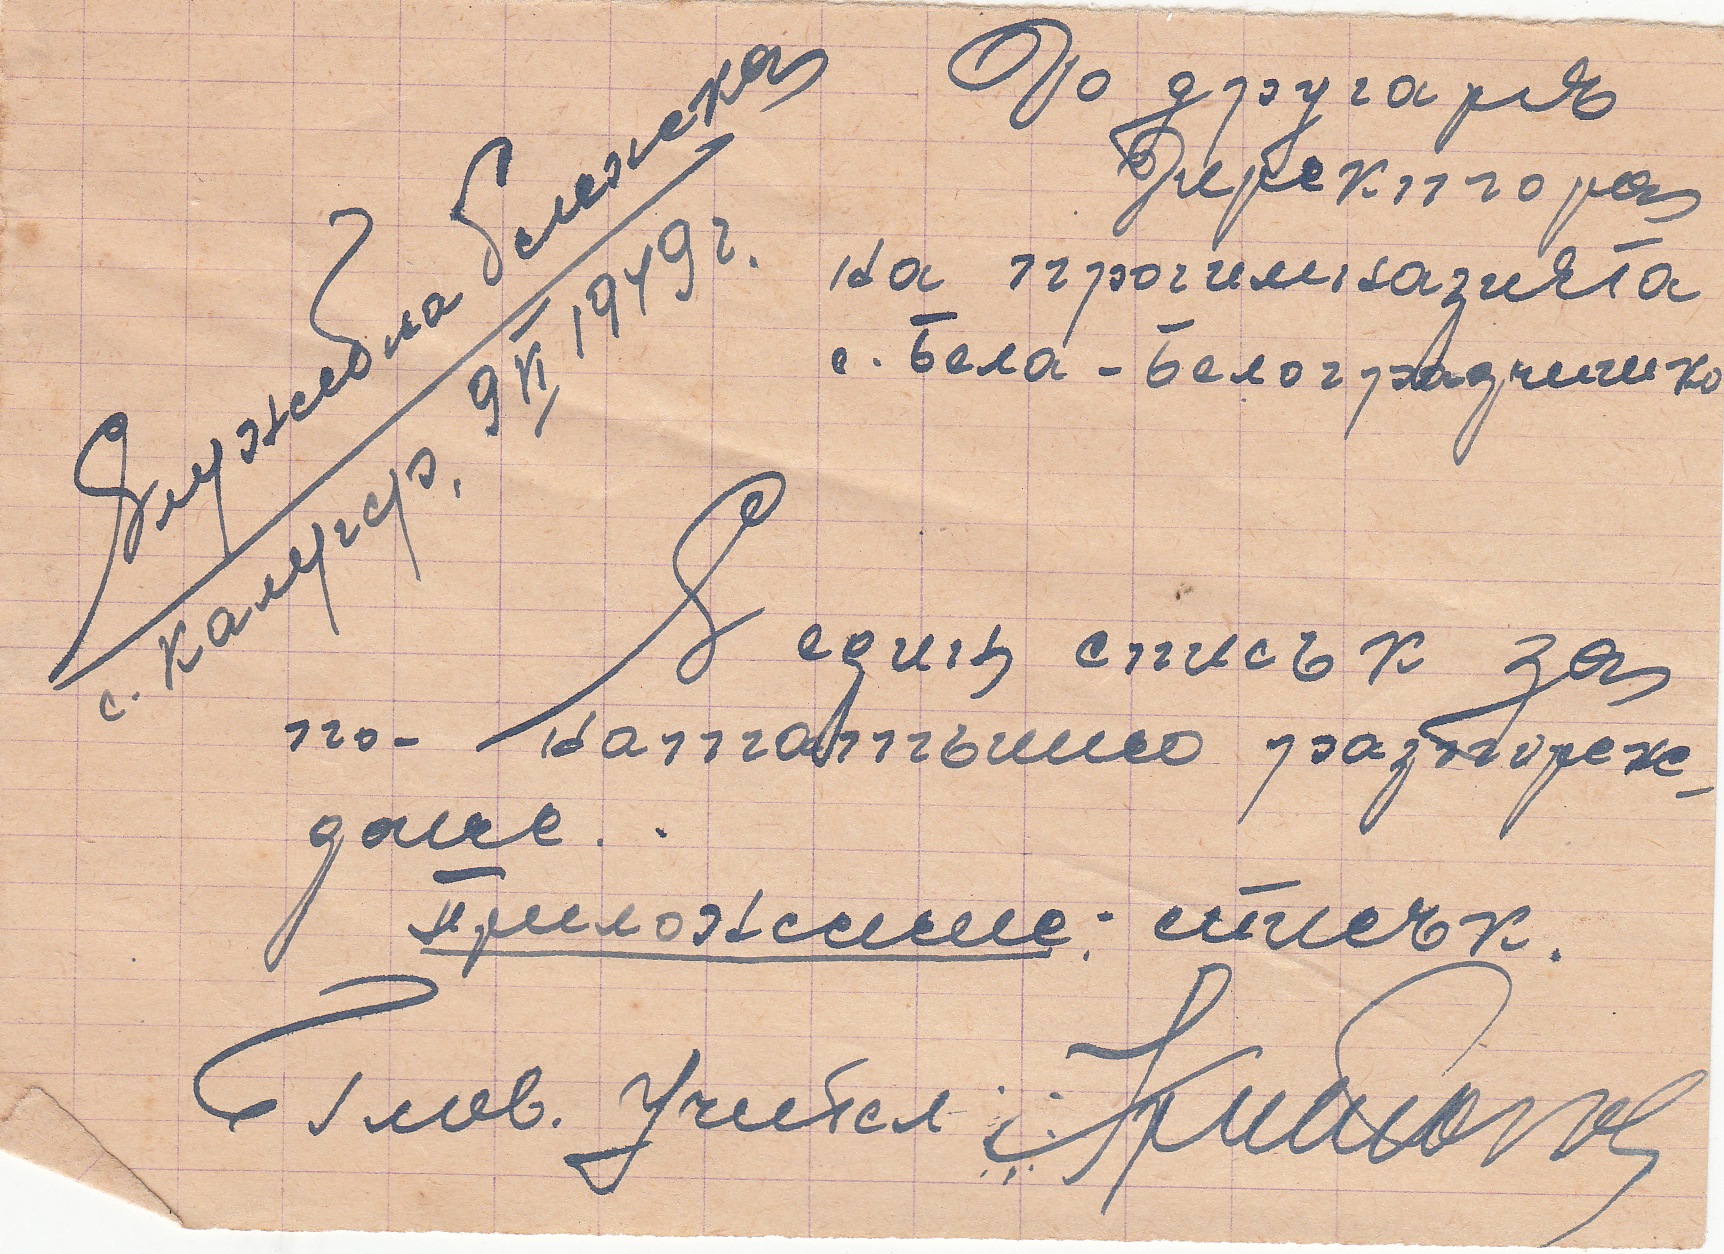 Служебна бележка
с. Калугер, 9 II 1949 г.
До другаря
Директора
на прогимназията
с. Бела - Белоградчишко
Един списък за
по-нататъшно разпореж-
дане.
Приложение: списък.
Глав. Учител: